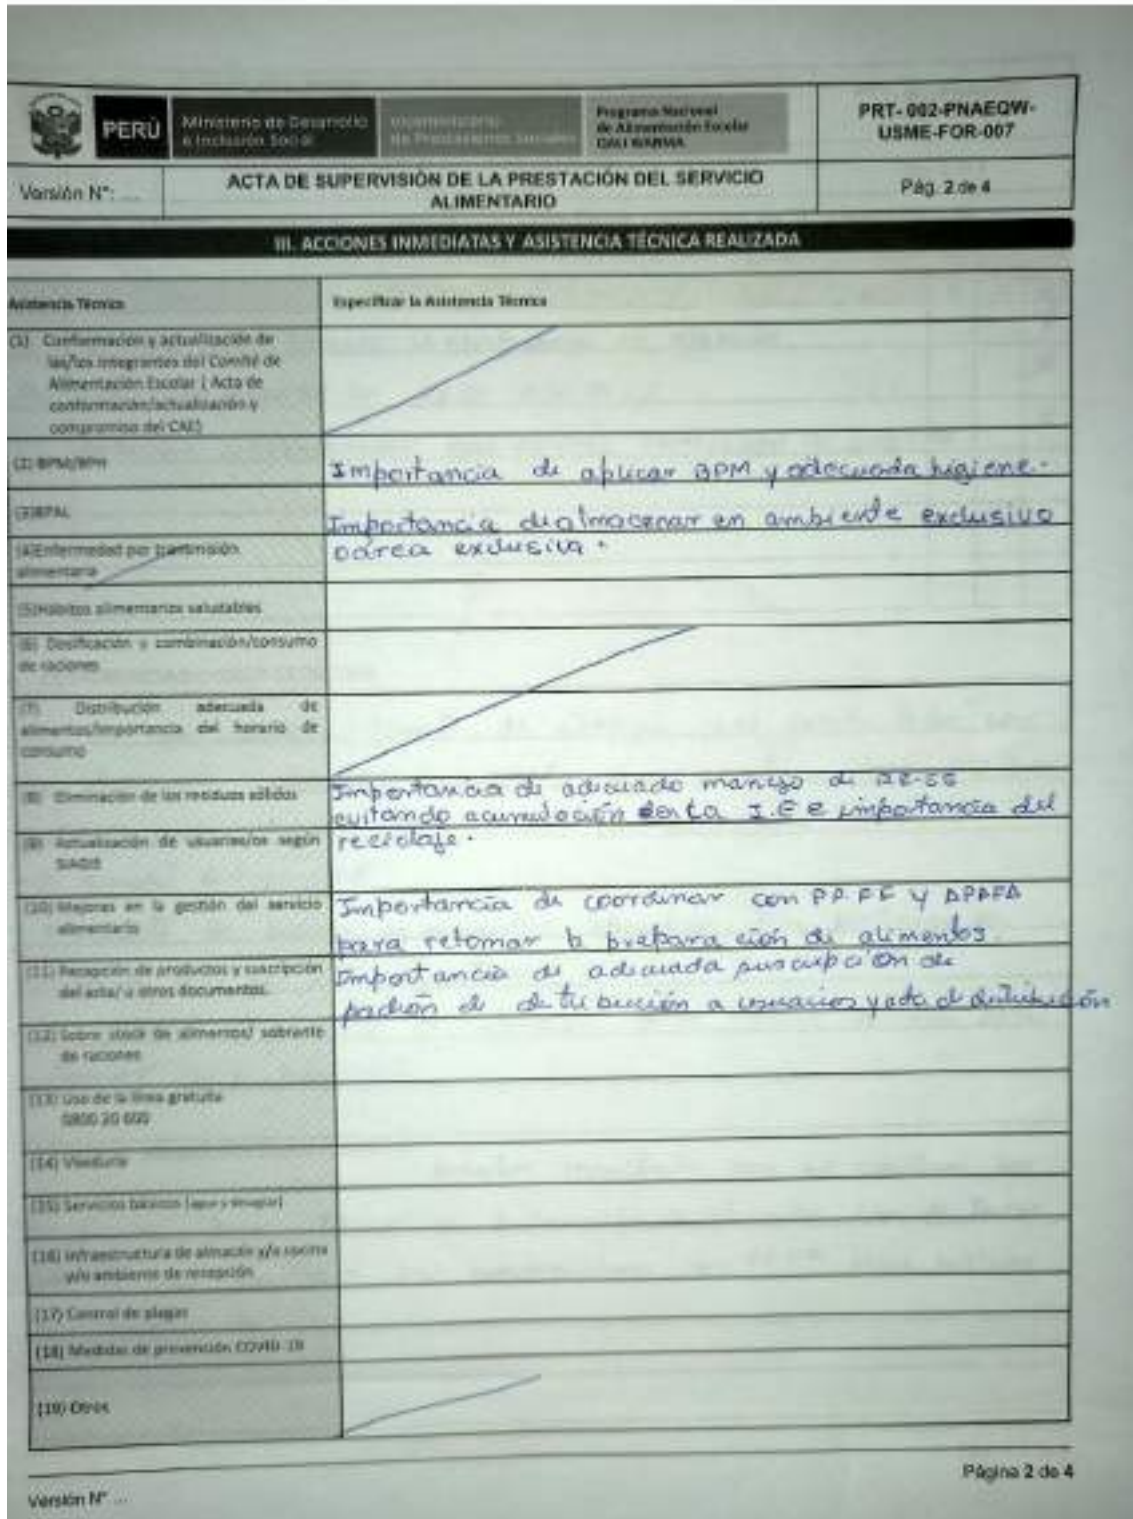 PERÚ
Ministerio de Desarrollo
e Inclusión Social
Programa Nacional
de Alimentación Escolar
QALI WARMA
PRT- 002-PNAEQW-
USME-FOR-007
Versión N°: ....
ACTA DE SUPERVISIÓN DE LA PRESTACIÓN DEL SERVICIO
ALIMENTARIO
Pág. 2 de 4
III. ACCIONES INMEDIATAS Y ASISTENCIA TÉCNICA REALIZADA
Asistencia Técnica
Especificar la Asistencia Técnica
(1) Conformación y actualización de
las/los integrantes del Comité de
Alimentación Escolar ( Acta de
conformación/actualización y
compromiso del CAE)
(2) BPM/BPH
Importancia de aplicar BPM y adecuada higiene.
(3)BPAL
Importancia de almacenar en ambiente exclusivo
o área exclusiva.
(4)Enfermedad por trasmisión
alimentaria
(5)Hábitos alimentarios saludables
(6) Dosificación y combinación/consumo
de raciones
(7) Distribución adecuada de
alimentos/importancia del horario de
consumo
(8) Eliminación de los residuos sólidos
Importancia de adecuado manejo de RR-SS
evitando acumulación en la I.E e importancia del
reciclaje.
(9) Actualización de usuarias/os según
SIAGIE
(10) Mejoras en la gestión del servicio
alimentario
Importancia de coordinar con PP.FF y APAFA
para retomar la preparación de alimentos.
(11) Recepción de productos y suscripción
del acta/ u otros documentos.
Importancia de adecuada suscripción de
padrón de distribución a usuarios y acta de distribución
(12) Sobre stock de alimentos/ sobrante
de raciones
(13) Uso de la línea gratuita
0800 20 600
(14) Veeduría
(15) Servicios básicos (agua y desagüe)
(16) Infraestructura de almacén y/o cocina
y/o ambiente de recepción
(17) Control de plagas
(18) Medidas de prevención COVID-19
(19) Otros
Página 2 de 4
Versión N° ...